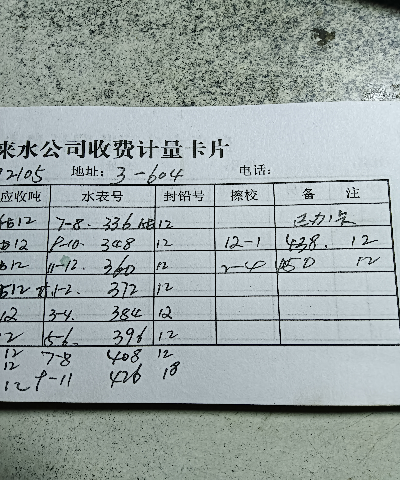 来水公司收费计量卡片
92105 地址: 3-604 电话:
应收吨 水表号 封铅号 擦校 备 注
12 7-8. 336 12
12 9-10. 348 12 12-1 438. 12
12 11-12. 360 12 2-4 450 12
12 1-2. 372 12
12 3-4. 384 12
12 5-6. 396 12
12 7-8 408 12
12
12 9-11 426 18